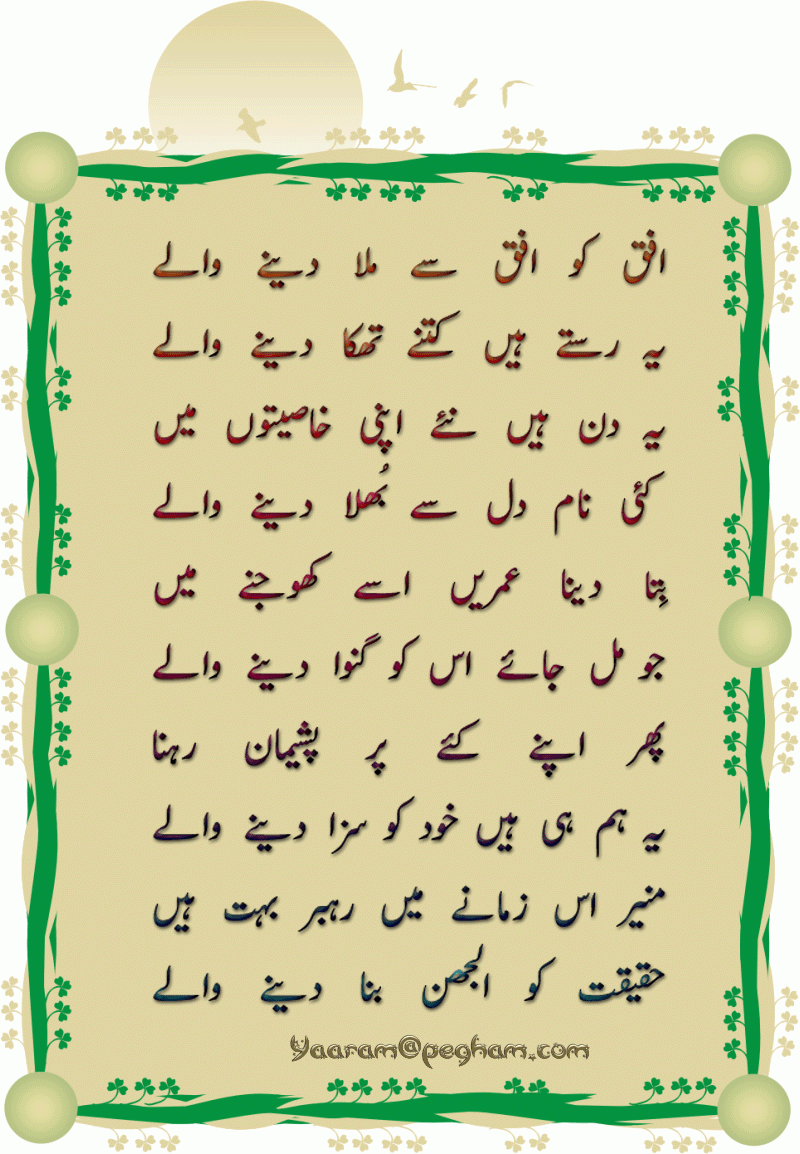 افق کو افق سے ملا دینے والے
یہ رستے ہیں کتنے تھکا دینے والے
یہ دن ہیں نئے اپنی خاصیتوں میں
کئی نام دل سے بُھلا دینے والے
بِتا دینا عمریں اسے کھوجنے میں
جو مل جائے اس کو گنوا دینے والے
پھر اپنے کئے پر پشیمان رہنا
یہ ہم ہی ہیں خود کو سزا دینے والے
منیر اس زمانے میں رہبر بہت ہیں
حقیقت کو الجھن بنا دینے والے
Yaaram@pegham.com